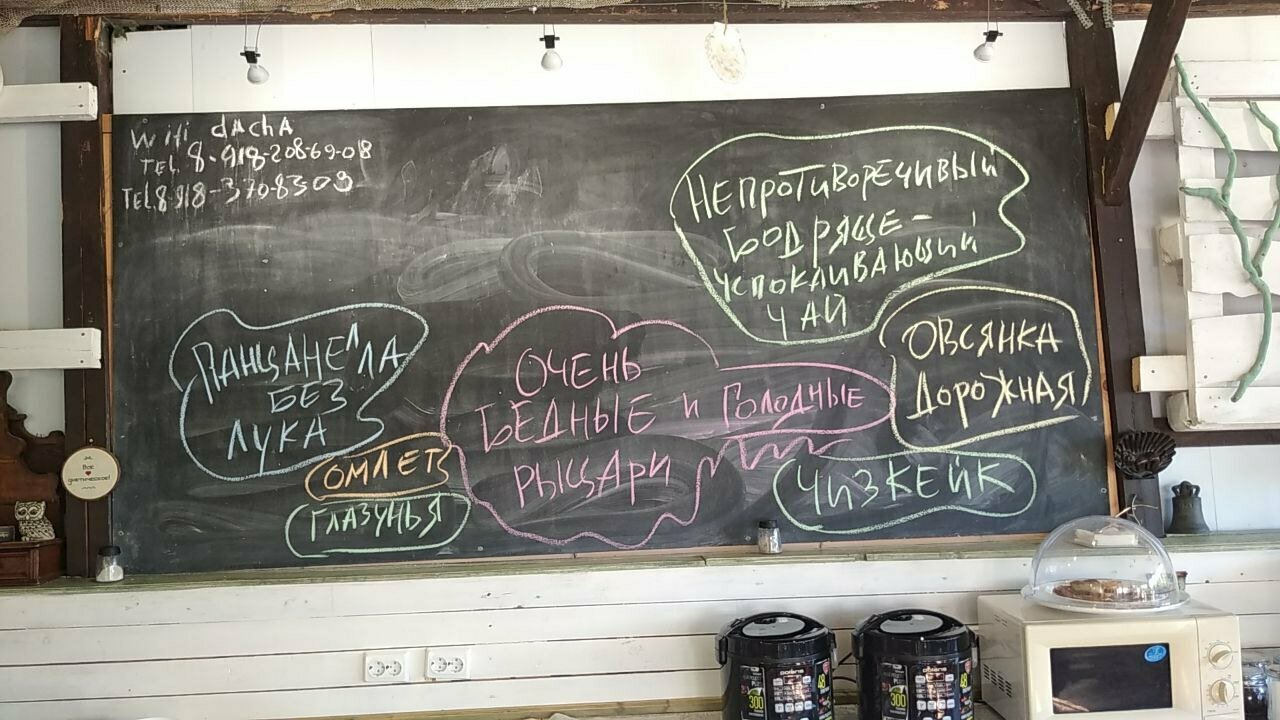 Wifi dAchA
TEL 8-918-208-69-08
TEL 8 918-370-8309
НЕПРОТИВОРЕЧИВЫЙ
БОДРЯЩЕ-
УСПОКАИВАЮЩИЙ
ЧАЙ
ПАНЦАНЕЛЛА
БЕЗ
ЛУКА
ОЧЕНЬ
БЕДНЫЕ И ГОЛОДНЫЕ
РЫЦАРИ
ОВСЯНКА
ДОРОЖНАЯ
ОМЛЕТ
ГЛАЗУНЬЯ
ЧИЗКЕЙК
Все
300